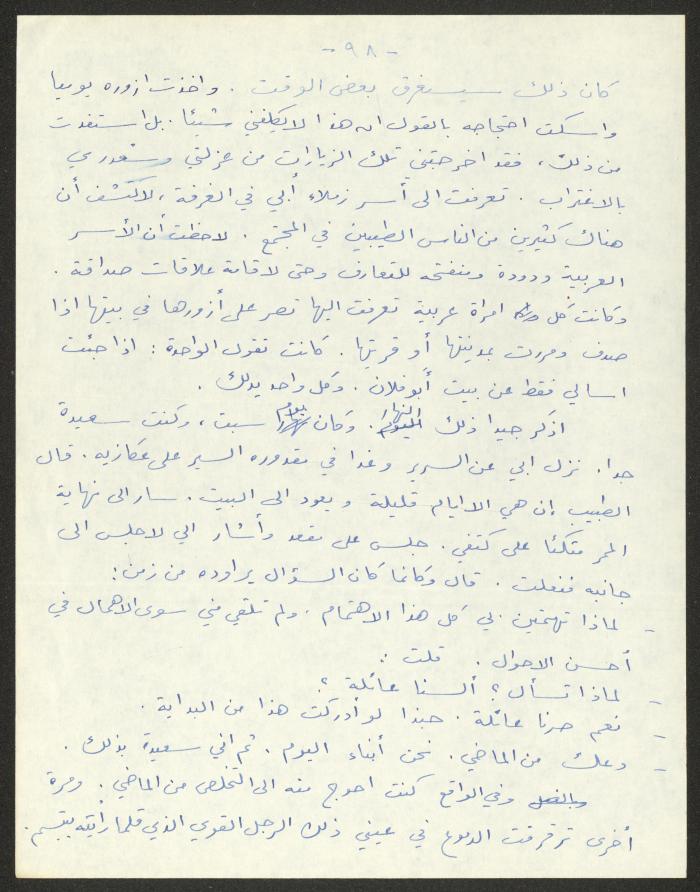 - ٩٨ -
كان ذلك سيستغرق بعض الوقت . واخذت ازوره يوميا
واسكت احتجاجه بالقول ان هذا لا يكلفني شيئا . بل استفدت
من ذلك ، فقد اخرجتني تلك الزيارات من عزلتي وشعوري
بالاغتراب . تعرفت الى أسر زملاء أبي في الغرفة ، لاكتشف أن
هناك كثيرين من الناس الطيبين في المجتمع . لاحظت أن الأسر
العربية ودودة ومنفتحة للتعارف وحتى لاقامة علاقات صداقة .
وكانت كل امرأة عربية تعرفت اليها تصر على أزورها في بيتها اذا
صدف ومررت بمدينتها أو قريتها . كانت تقول الواحدة : اذا جئت
اسالي فقط عن بيت أبو فلان . وكل واحد يدلك .
اذكر جيدا ذلك النهار . وكان يوم سبت ، وكنت سعيدة
جدا . نزل ابي عن السرير وغدا في مقدوره السير على عكازيه . قال
الطبيب إن هي الا ايام قليلة ويعود الى البيت . سار الى نهاية
الممر متكئا على كتفي . جلس على مقعد وأشار الي لاجلس الى
جانبه ففعلت . قال وكانما كان السؤال يراوده من زمن :
- لماذا تهتمين بي كل هذا الاهتمام . ولم تلقي مني سوى الاهمال في
أحسن الاحوال . قلت :
- لماذا تسأل ؟ ألسنا عائلة ؟
- نعم صرنا عائلة . حبذا لو أدركت هذا من البداية .
- دعك من الماضي . نحن أبناء اليوم . ثم اني سعيدة بذلك .
وبالفعل وفي الواقع كنت احوج منه الى التخلص من الماضي . ومرة
أخرى ترقرقت الدموع في عيني ذلك الرجل القوي الذي قلما رأيته يبتسم .